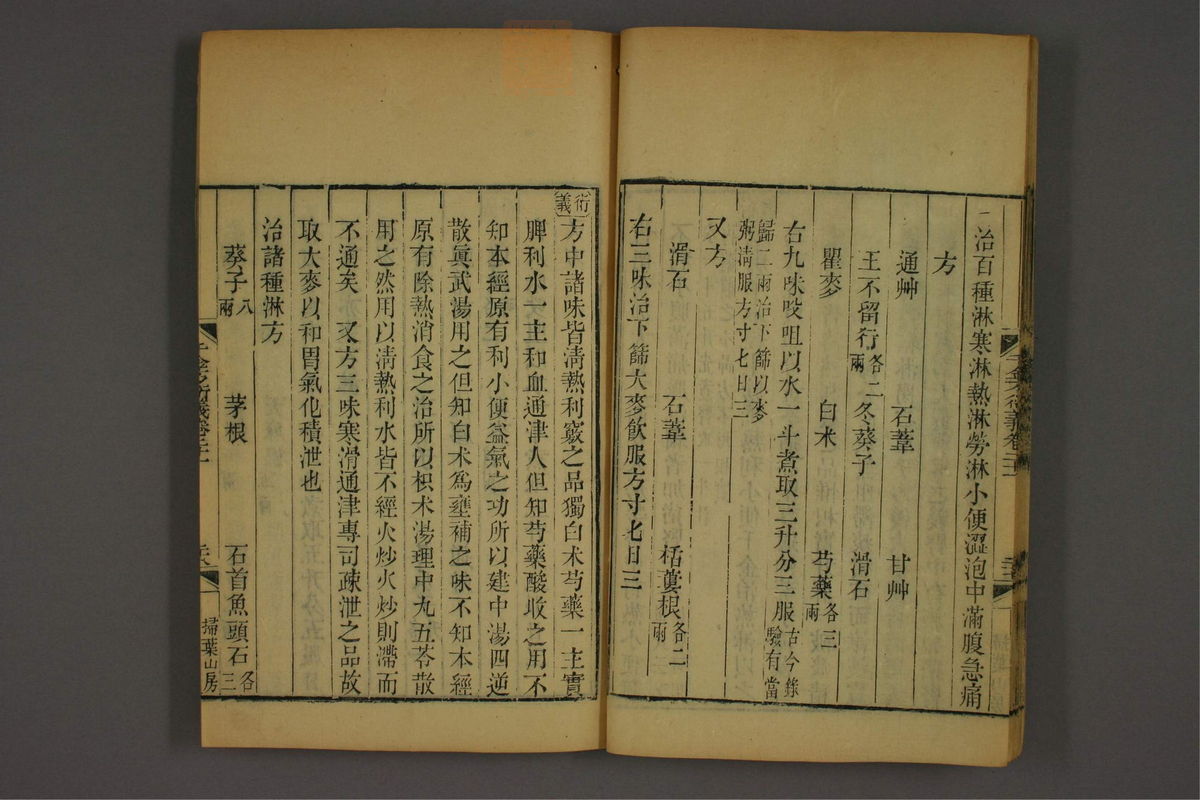 治百種淋寒淋熱淋勞淋小便澀泡中滿腹急痛
方
通艸 石葦 甘艸
王不留行各二兩 冬葵子 滑石
瞿麥 白朮 芍藥各三兩
右九味㕮咀以水一斗煮取三升分三服古今錄驗有當
歸二兩治下篩以麥粥清服方寸七日三
又方
滑石 石葦 栝蔞根各二兩
右三味治下篩大麥飲服方寸匕日三
衍義
方中諸味皆清熱利竅之品獨白朮芍藥一主實
脾利水一主和血通津人但知芍藥酸收之用不
知本經原有利小便益氣之功所以建中湯四逆
散眞武湯用之但知白朮爲壅補之味不知本經
原有除熱消食之治所以枳朮湯理中丸五苓散
用之然用以清熱利水皆不經火炒火炒則滯而
不通矣又方三味寒滑通津專司疎泄之品故
取大麥以和胃氣化積泄也
治諸種淋方
葵子八兩 茅根 石首魚頭石各三
掃葉山房